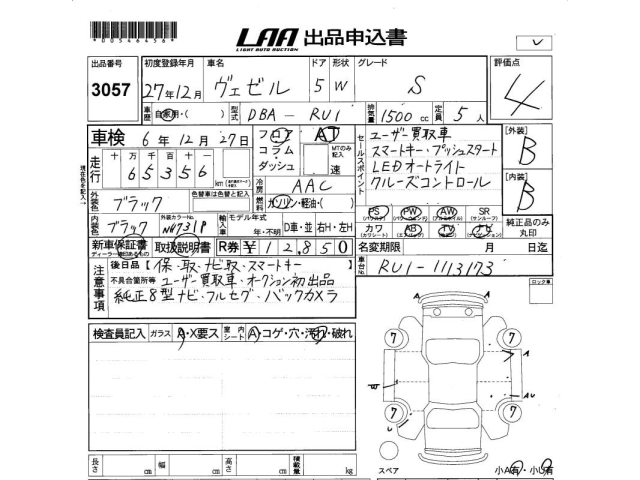 LAA 出品申込書
LIGHT AUTO AUCTION
出品番号 3057
初度登録年月 27年12月
車名 ヴェゼル
ドア 5 形状 W
グレード S
評価点 4
車歴 自家用・( )
型式 DBA-RU1
排気量 1500 cc
定員 5人
車検 6年12月27日
フロア コラム・ダッシュ
AT MTのみ記入 速
セールスポイント
ユーザー買取車
スマートキー・プッシュスタート
LEDオートライト
クルーズコントロール
[外装] B
[内装] B
走行 十 万 千 百 十
65356 km
冷房 AAC
燃料 ガソリン・軽油・( )
外装色 ブラック
色替車は色替と記入
内装色 ブラック
外装カラーNo. NH731P
輸入車 モデル年式 年・不明
D車・並 右H・左H
PS PW AW SR
カワ AB TV ナビ
純正品のみ丸印
新車保証書 取扱説明書
R券 ¥12,850
名変期限 月 日迄
車台No. RU1-1113173
注意事項
後日品【保・取・ナビ取・スマートキー
不具合箇所等 ユーザー買取車・オークション初出品
純正8型ナビ・フルセグ・バックカメラ
検査員記入 ガラス A・X要ス 室内シート A・コゲ・穴・汚れ・破れ
ロック車
7 7
A
W
AU
7 7
スペア
長さ cm 幅 cm 高さ cm 積載量 kg
小A有・小U有